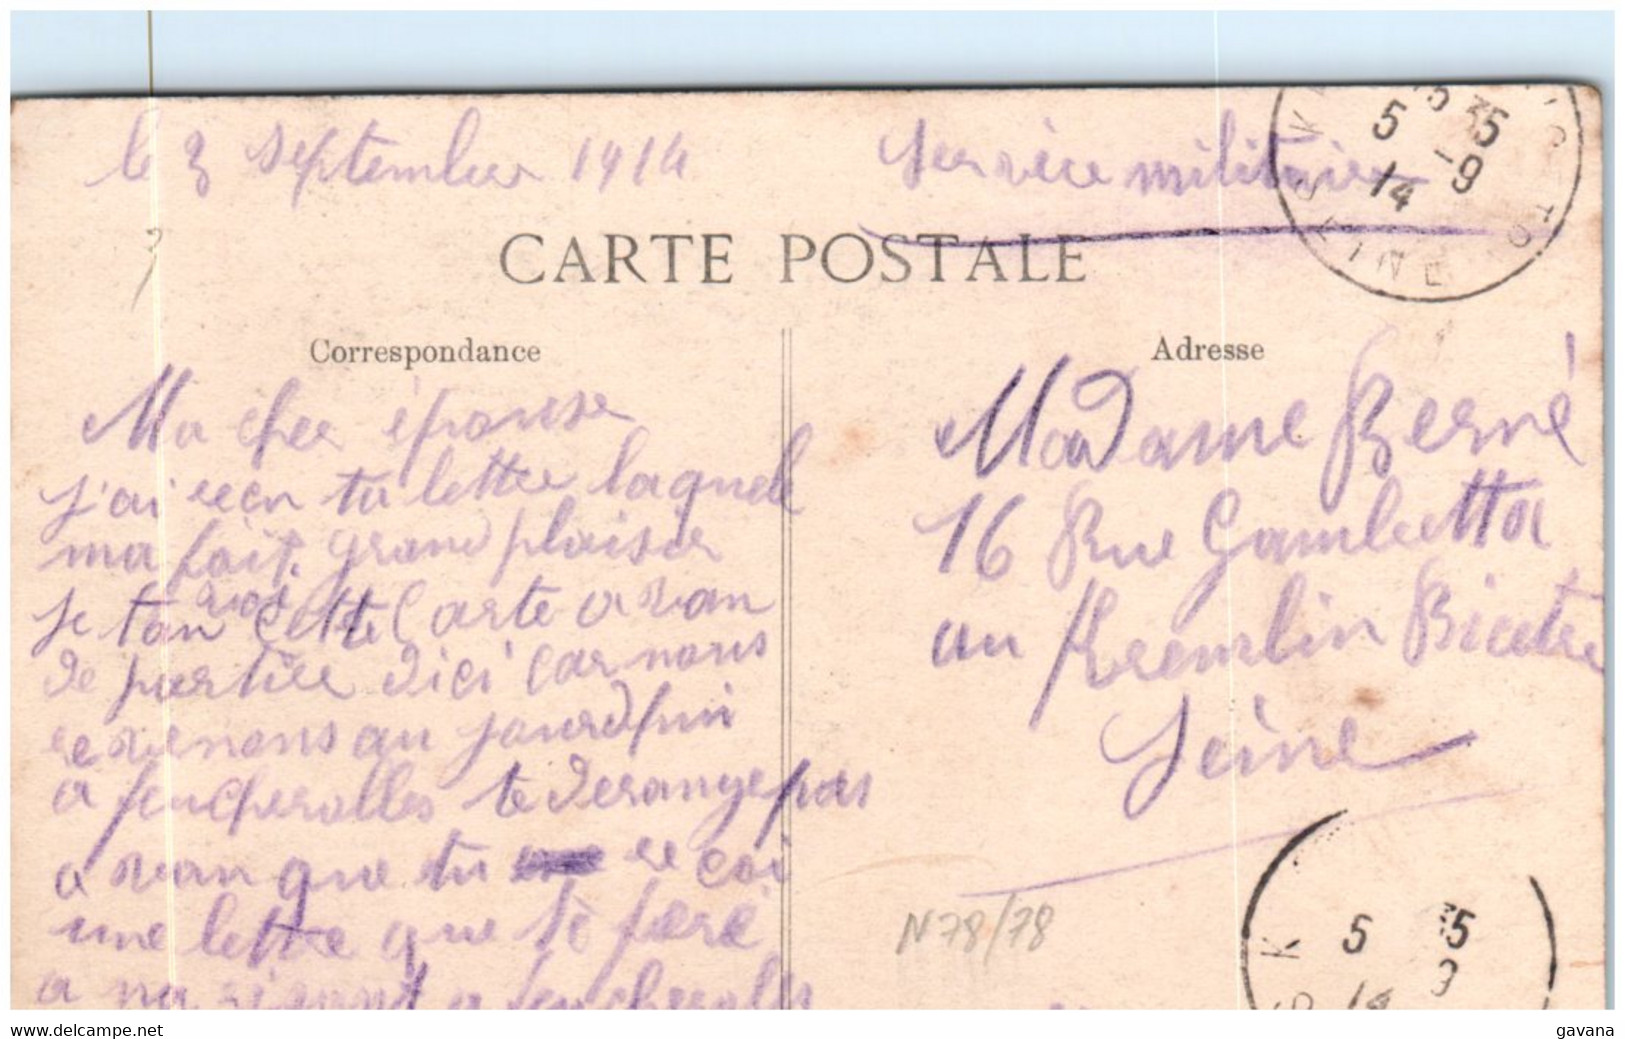 le 3 septembre 1914
service militaire
5 35
5 -9
14
CARTE POSTALE
Correspondance
Adresse
Ma cher épouse
j'ai recu ta lettre laquel
ma fait grand plaisir
je tanvoi cette Carte avan
de partire dici car nous
revenons au jourdhui
a feucherolles te derange pas
avan que tu recoi
une lettre que te feré
an arivant a feucherolles
Madame Berné
16 Rue Gambetta
au Kremlin Bicetre
Seine
N78/78
K
5 35
9
14
www.delcampe.net
gavana